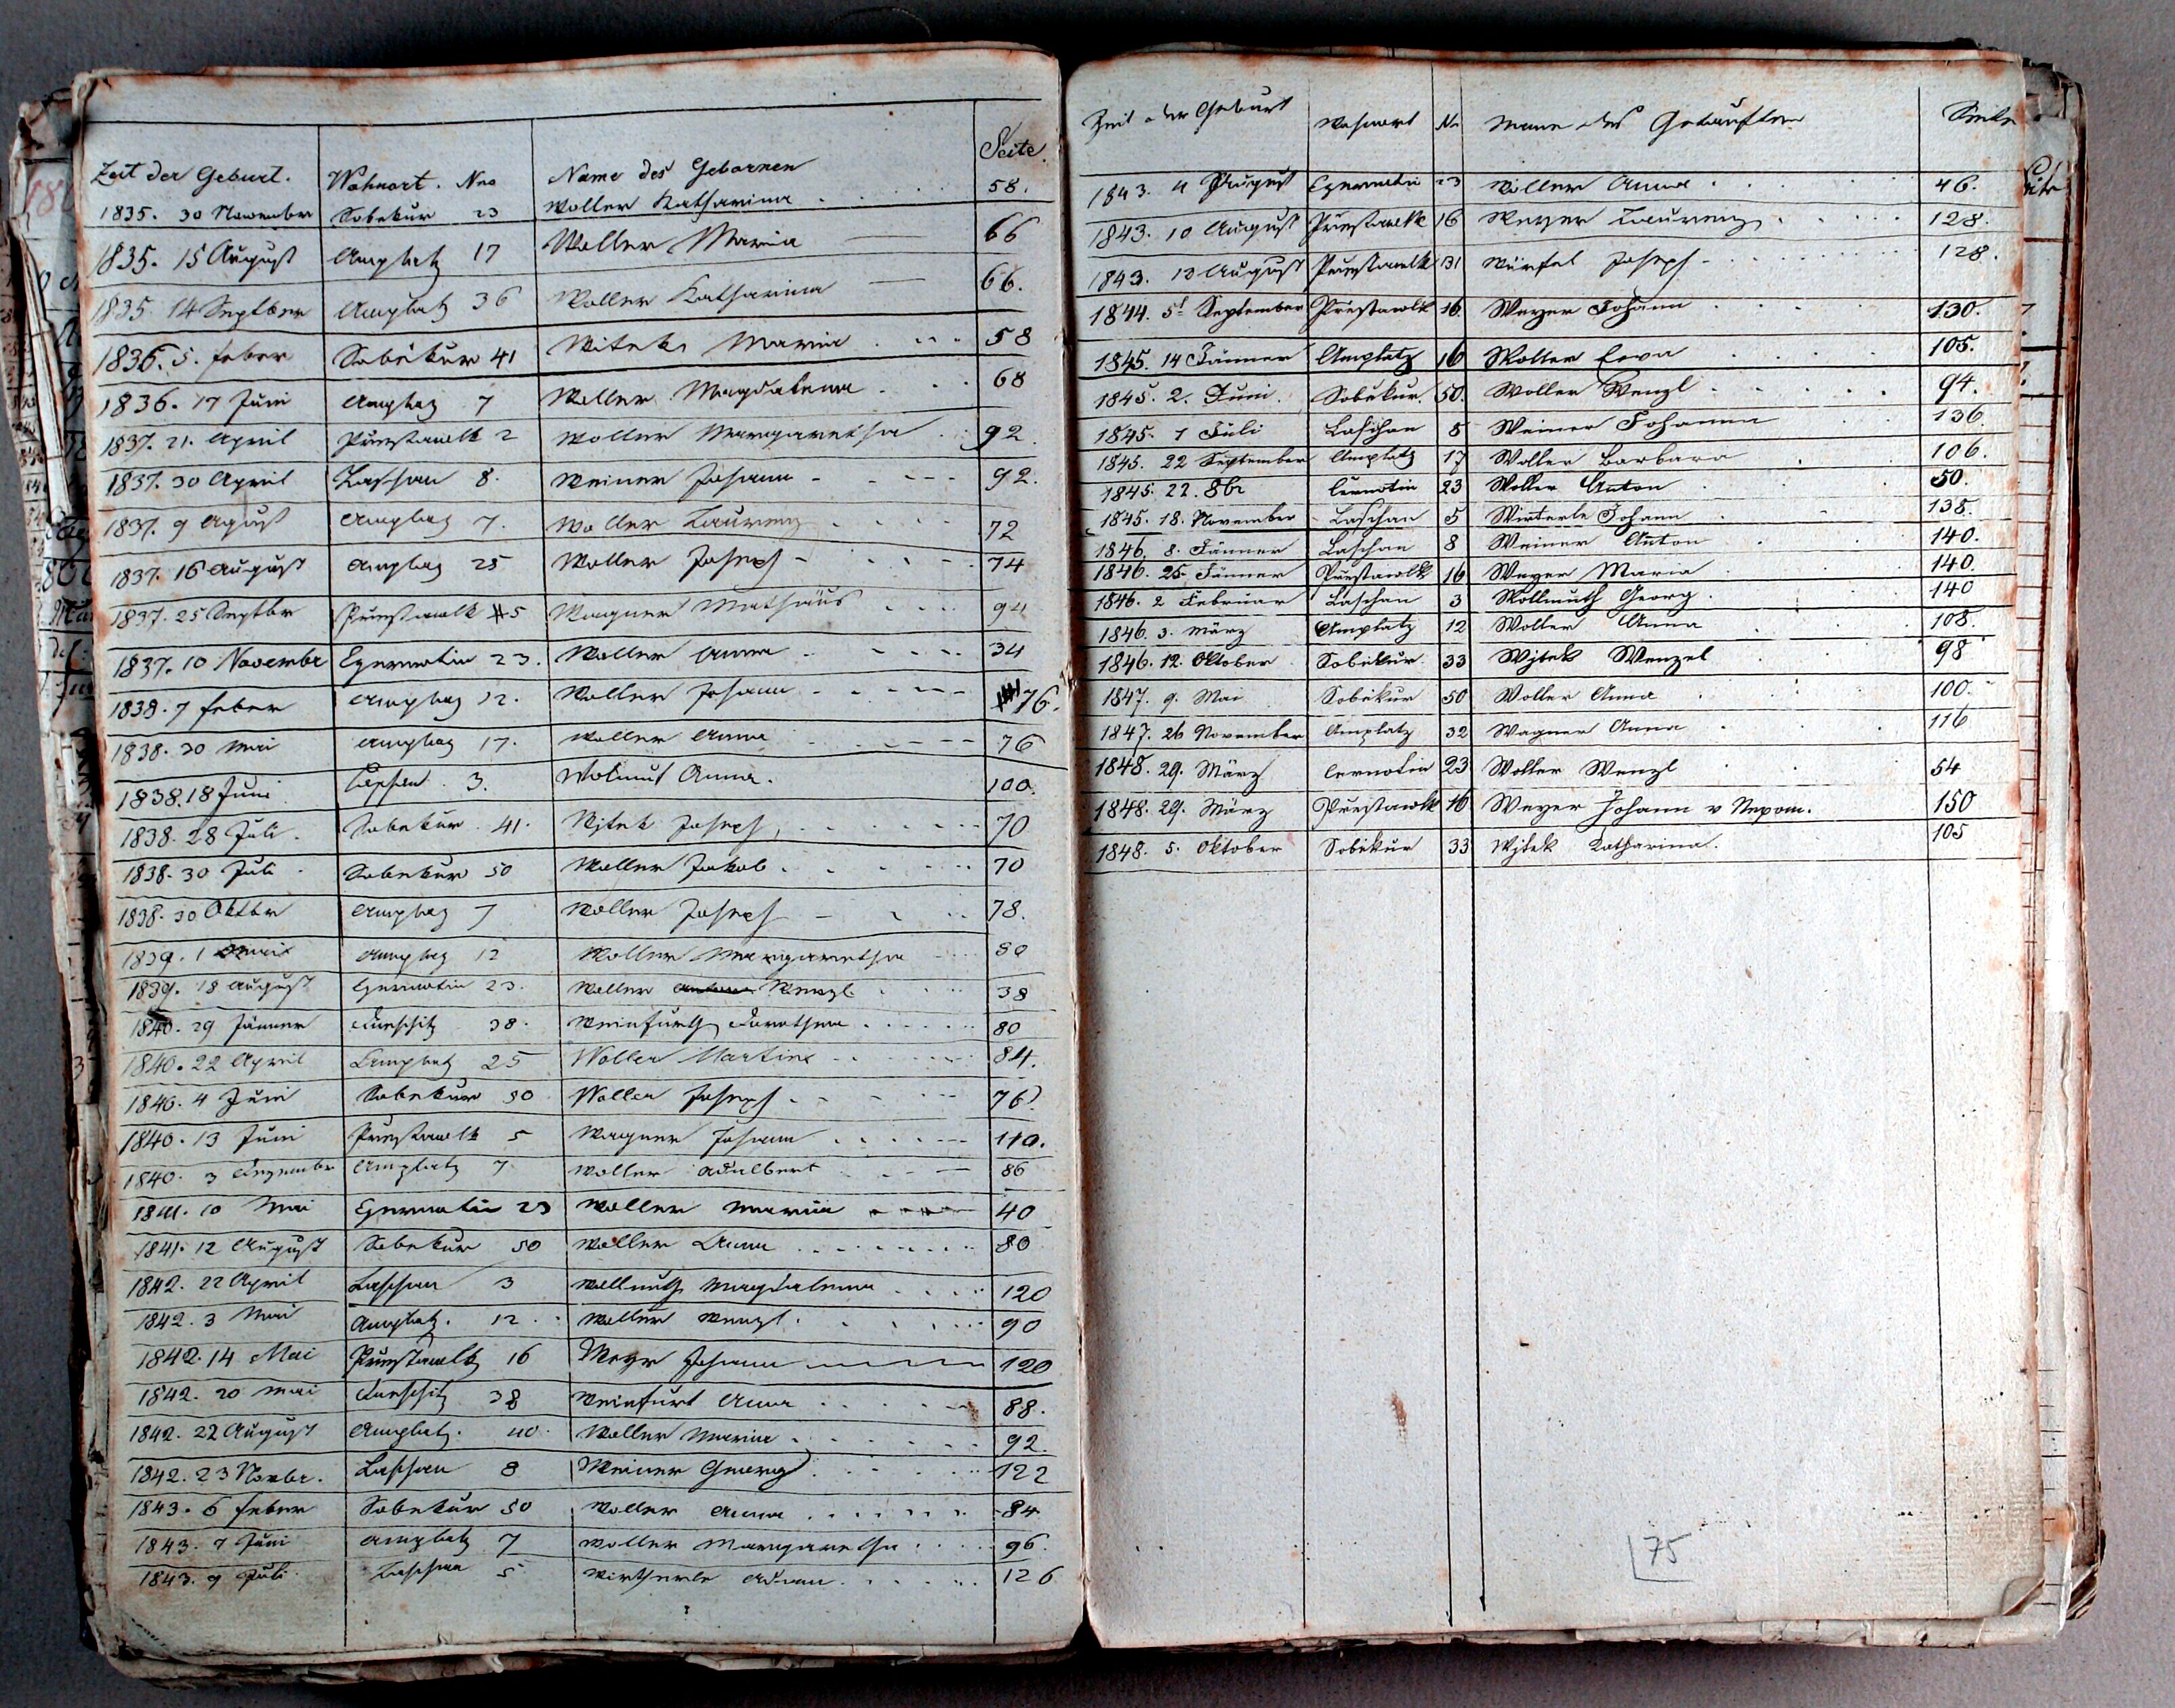 Zeit der Geburt. Wohnort. Nro Name des Gebornen Seite.
1835. 30 November Sobekur 23 Woller Katharina 58.
1835. 15 August Amplatz 17 Woller Maria 66
1835. 14 Septber Amplatz 36 Woller Katharina 66.
1836. 5. feber Soběkur 41 Witek Maria 58
1836. 17 Juni Amplatz 7 Woller Magdalena 68
1837. 21. April Přestawlk 2 Woller Margaretha 92.
1837. 30 April Laschan 8. Weiner Johann 92.
1837. 9 Agust Amplatz 7. Woller Laurenz 72
1837. 16 August Amplatz 25 Woller Joseph 74
1837. 25 Septbr Přestawlk 5 Wagner Mathäus 94
1837. 10 Novembr Czernotin 23. Woller Anna 34
1838. 7 feber Amplatz 12. Woller Johann 76.
1838. 30 Mai Amplatz 17. Woller Anna 76
1838. 18 Juni Laschan 3. Wolmut Anna. 100.
1838. 28 Juli. Sobekur 41. Wjtek Joseph 70
1838. 30 Juli Sobekur 50 Woller Jakob 70
1838. 30 Oktbr Amplatz 7 Woller Joseph 78.
1839. 1 Amplatz 12 Woller Margaretha 80
1839. 18 August Czernotin 23. Woller Wenzl 38
1840. 29 Jänner 38. Weinfurth Dorothea 80
1840. 22 April Amplatz 25 Woller Martin 84.
1840. 4 Juni Sobekur 50 Woller Joseph 76.
1840. 13 Juni Přestawlk 5 Wagner Johann 110.
1840. 3 Dezember Amplatz 7 Woller Adalbert 86
1841. 10 Mai Czernotin 23 Woller Maria 40
1841. 12 August Sobekur 50 Woller Anna 80
1842. 22 April Laschan 3 Wollmuth Magdalena 120
1842. 3 Mai Amplatz. 12. Woller Wenzl. 90
1842. 14 Mai Přestawlk 16 Weyr Johann 120
1842. 20 Mai 38 Weinfurt Anna 88.
1842. 22 August Amplatz. 40. Woller Maria 92.
1842. 23 Novbr. Laschan 8 Weiner Georg 122
1843. 6 feber Sobekur 50 Woller Anna 84
1843. 7 Juni Amplatz 7 Woller Margaretha 96.
1843. 9 Juli Laschan 5 Wirtherle Adam 126
Zeit der Geburt Wohnort No Name des Getauften Seite
1843. 4 August Czernotin 23 Woller Anna 46.
1843. 10 August Přestawlk 16 Weyer Laurenz 128.
1843. 13 August Přestawlk 31 Würfel Joseph 128.
1844. 5t September Přestawlk 16. Weyer Johann 130.
1845. 14 Jänner Amplatz 16 Woller Eva 105.
1845. 2. Juni. Soběkur. 50. Woller Wenzl 94.
1845. 1 Juli Laschan 8 Weiner Johanna 136
1845. 22 September Amplatz 17 Woller Barbara 106.
1845. 22. 8br Černotin 23 Woller Anton 50.
1845. 18. November Laschan 5 Wirterle Johann 138.
1846. 8. Jänner Laschan 8 Weiner Anton 140.
1846. 25 Jänner Přestawlk 16 Weyer Maria 140.
1846. 2 Februar Laschan 3 Wollmuth Georg. 140
1846. 3. März Amplatz 12 Woller Anna 108.
1846. 12. Oktober Soběkur 33 Wjtek Wenzel 98
1847. 9. Mai Soběkur 50 Woller Anna 100.
1847. 26 November Amplatz 32 Wagner Anna 116
1848. 29. März Cernotin 23 Woller Wenzl 54
1848. 29. März Přestawlk 16 Weyer Johann v Nepom. 150
1848. 5. Oktober Soběkur 33 Wjtek Katharina. 105
75